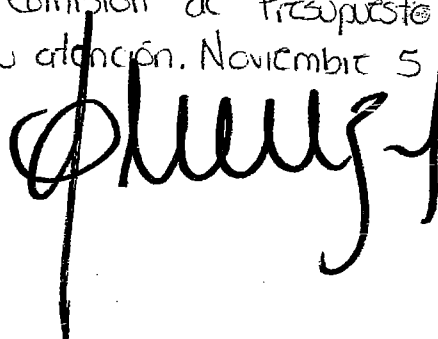 Comisión de Presupuesto
atención. Noviembre 5